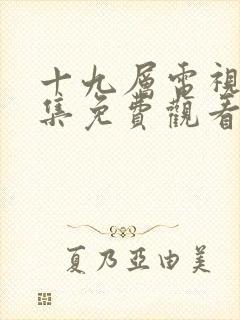 十九層電視
集免費觀看
夏乃亞由美